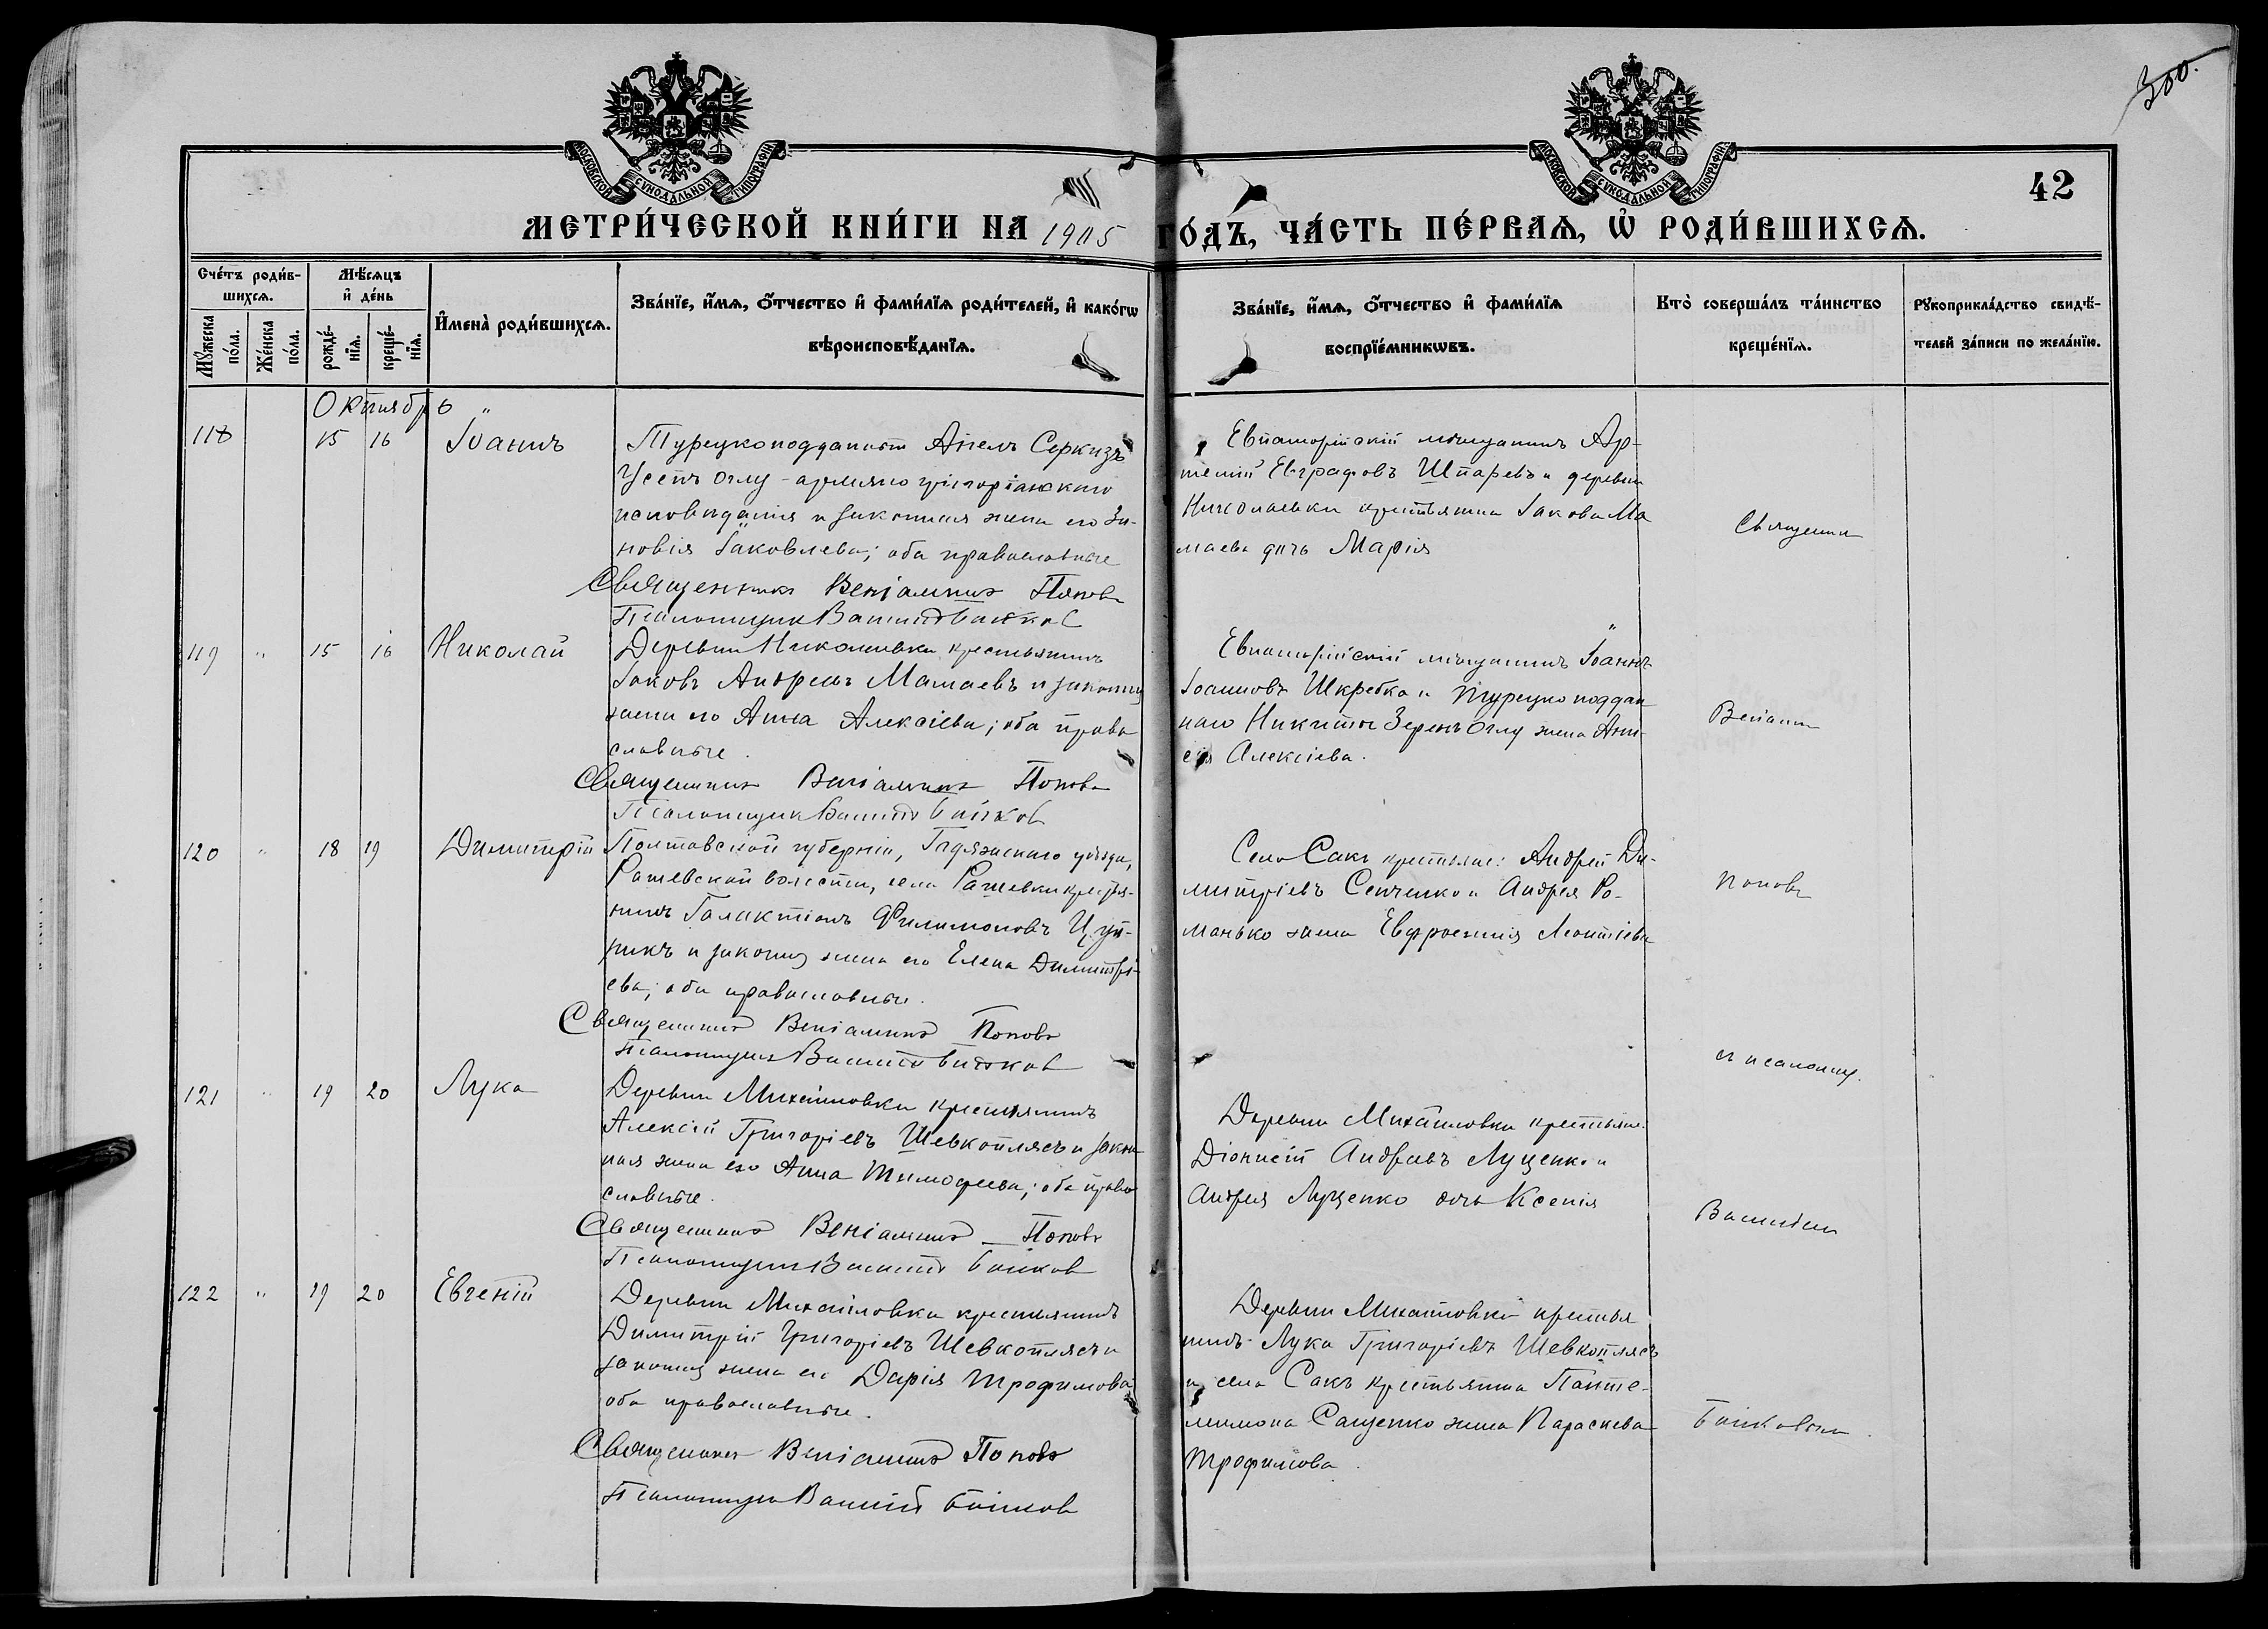 300.
МОСКОВСКОЙ СѴНОДАЛЬНОЙ ТИПОГРАФІИ
МОСКОВСКОЙ СѴНОДАЛЬНОЙ ТИПОГРАФІИ
42
МЕТРИ́ЧЕСКОЙ КНИ́ГИ НА 1905 ГО́ДЪ, ЧА́СТЬ ПЕ́РВАЯ, Ѡ҆ РОДИ́ВШИХСЯ.
Сче́тъ роди́в-
шихся.
Мꙋ́жеска
по́ла.
Же́нска
по́ла.
Мѣ́сяцъ
и҆ де́нь
рожде́-
нїя.
креще́-
нїя.
И҆мена̀ роди́вшихся.
Зва́нїе, и҆́мя, ѻ҆́тчество и҆ фами́лїя роди́телей, и҆ како́гѡ
вѣроисповѣ́данїя.
Зва́нїе, и҆́мя, ѻ҆́тчество и҆ фами́лїя
воспрїе́мникѡвъ.
Кто̀ соверша́лъ та́инство
креще́нїя.
Рꙋкоприкла́дство свидѣ́-
телей за́писи по жела́нїю.
Октябрь
118 15 16 Іоаннъ
Турецкоподданный Серкизъ
Оглу - армяно григоріанскаго
исповѣданія и законная жена его Зи-
новія Іаковлева; оба православные
Священникъ Веніаминъ Поповъ
Псаломщикъ Василій Байков
Евпаторійскій мѣщанинъ Ар-
темій Евграфовъ Шпаревъ и деревни
Николаевки крестьянина Іакова Ма
маева дочь Марія
Священни
119 " 15 16 Николай
Деревни Николаевки крестьянинъ
Іаковъ Андреевъ Мамаевъ и законная
жена его Анна Алексіева; оба право
славные.
Священникъ Веніаминъ Поповъ
Псаломщикъ Василій Байков
Евпаторійскій мѣщанинъ Іоаннъ
Іоанновъ Шкребка и турецко поддан
наго Никиты Оглу жена
Алексіева.
Веніамин
120 " 18 19 Димитрій
Полтавской губерніи, Гадяжскаго уѣзда,
Рашевской волости, села Рашевки крестья-
нинъ Галактіонъ Филимоновъ Цуп-
рикъ и законная жена его Елена Димитрі-
ева; оба православные.
Священникъ Веніаминъ Поповъ
Псаломщикъ Василій Байков
Село Сакъ крестьяне: Андрей Ди-
митріевъ Сенченко и Андрея Ро-
манько жена Евфросинія Леонтіева
Поповъ
съ псаломщ.
121 " 19 20 Лука
Деревни Михайловки крестьянинъ
Алексій Григоріевъ Шевкоплясъ и закон
ная жена его Анна Тимофеева; оба право
славные.
Священникъ Веніаминъ Поповъ
Псаломщикъ Василій Байков
Деревни Михайловки крестьяне:
Діонисій Андреевъ Луценко и
Андрея Луценко дочь Ксенія
Василіем
122 " 19 20 Евгеній
Деревни Михайловки крестьянинъ
Димитрій Григоріевъ Шевкоплясъ и
законная жена его Дарія Трофимова
оба православные.
Священникъ Веніаминъ Поповъ
Псаломщикъ Василій Байков
Деревни Михайловки крестья
нинъ Лука Григоріевъ Шевкоплясъ
и села Сакъ крестьянина Панте-
леимона Сащенко жена Параскева
Трофимова.
Байковым.